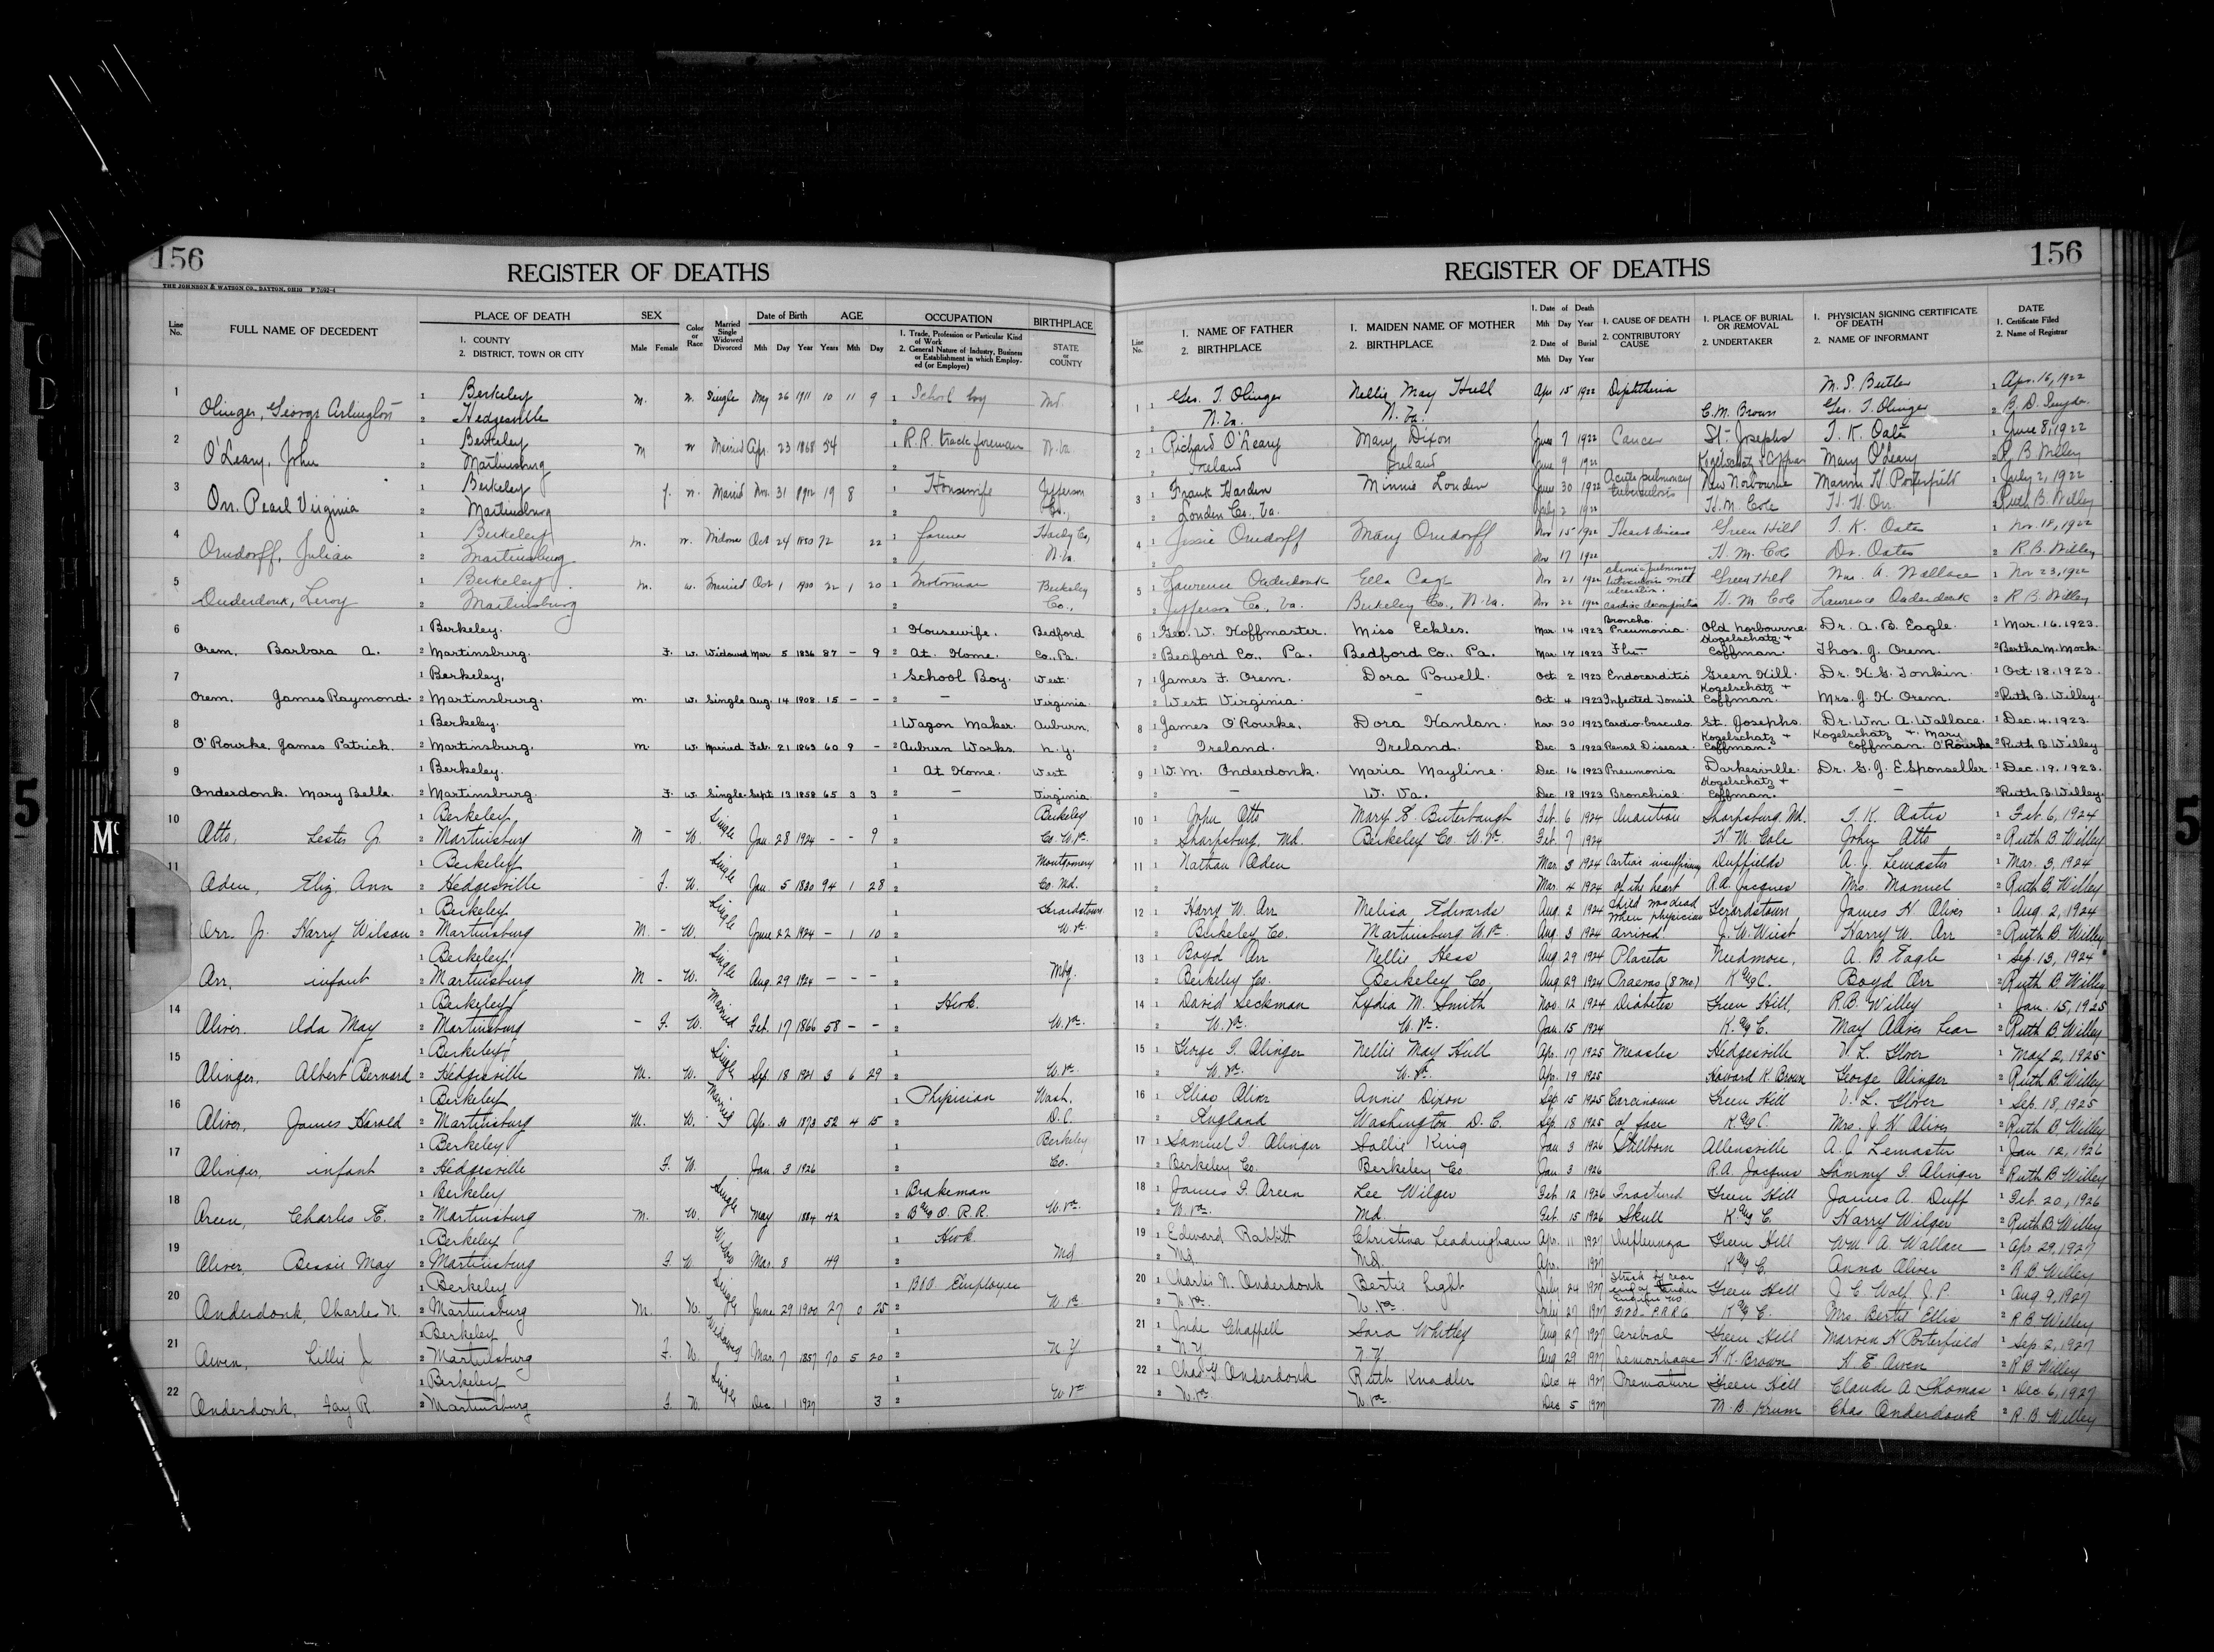 156
REGISTER OF DEATHS
THE JOHNSON & WATSON CO., DAYTON, OHIO P 7692-4
Line No. FULL NAME OF DECEDENT PLACE OF DEATH 1. COUNTY 2. DISTRICT, TOWN OR CITY SEX Male Female Color or Race Married Single Widowed Divorced Date of Birth Mth Day Year AGE Years Mth Day OCCUPATION 1. Trade, Profession or Particular Kind of Work 2. General Nature of Industry, Business or Establishment in which Employed (or Employer) BIRTHPLACE STATE or COUNTY
1 Olinger, George Arlington 1 Berkeley m. w. Single May 26 1911 10 11 9 1 School boy Md.
2 Hedgesville 2
2 O'Leary, John 1 Berkeley m w Married Apr. 23 1868 54 1 R.R. track foreman W. Va
2 Martinsburg 2
3 Orr, Pearl Virginia 1 Berkeley f. w. Married Nov. 31 1902 19 8 1 Housewife Jefferson Co.,
2 Martinsburg 2
4 Orndorff, Julian 1 Berkeley m. w. Widower Oct 24 1850 72 22 1 farmer Hardy Co, W. Va.
2 Martinsburg 2
5 Onderdonk, Leroy 1 Berkeley m. w. Married Oct 1 1900 22 1 20 1 Motorman Berkeley Co.,
2 Martinsburg 2
6 1 Berkeley. 1 Housewife. Bedford
Orem. Barbara A. 2 Martinsburg. F. W. Widowed Mar. 5 1836 87 – 9 2 At. Home. Co. Pa.
7 1 Berkeley. 1 School Boy. West
Orem. James Raymond. 2 Martinsburg. m. W. Single Aug. 14 1908. 15 – – 2 – Virginia
8 1 Berkeley. 1 Wagon Maker. Auburn,
O'Rourke, James Patrick. 2 Martinsburg. m. W. Married Feb. 21 1863 60 9 – 2 Auburn Works. N.Y.
9 1 Berkeley. 1 At Home. West
Onderdonk. Mary Belle. 2 Martinsburg. F. W. Single. Sept 13 1858 65 3 3 2 – Virginia.
10 1 Berkeley Single 1 Berkeley
Otts, Lester J. 2 Martinsburg M – W. Jan. 28 1924 – – 9 2 Co. W. Va.
11 1 Berkeley Single 1 Montgomery
Oden, Eliz. Ann 2 Hedgesville – F. W. Jan. 5 1830 94 1 28 2 Co. Md.
1 Berkeley Single 1 Gerardstown
Orr Jr. Harry Wilson 2 Martinsburg M. – W. June 22 1924 – 1 10 2 W. Va.
1 Berkeley Single 1
Orr, infant 2 Martinsburg M – W. Aug. 29 1924 – – – 2 Mbg.
14 1 Berkeley Married 1 Hswk.
Oliver. Ida May 2 Martinsburg – F. W. Feb. 17 1866 58 – – 2 W. Va.
15 1 Berkeley Single 1
Olinger, Albert Bernard 2 Hedgesville M. W. Sep. 18 1921 3 6 29 2 W. Va.
16 1 Berkeley Married 1 Physician Wash.
Oliver, James Harold 2 Martinsburg M. W. Apr. 31 1873 52 4 15 2 D.C.
17 1 Berkeley 1 Berkeley
Olinger, infant 2 Hedgesville F. W. Jan. 3 1926 2 Co.
18 1 Berkeley Single 1 Brakeman
Oreen, Charles E. 2 Martinsburg M. W. May 1884 42 2 B & O. R.R. W. Va.
19 1 Berkeley Widow 1 Hswk
Oliver, Bessie May 2 Martinsburg F. W. Mar. 8 49 2 Md
20 1 Berkeley Single 1 B&O Employee
Onderdonk, Charles N. 2 Martinsburg M. W. June 29 1900 27 0 25 2 W. Va.
21 1 Berkeley Widowed 1
Owen, Lillie J 2 Martinsburg F. W. Mar. 7 1857 70 5 20 2 N. Y
22 1 Berkeley Single 1
Onderdonk, Fay R. 2 Martinsburg F. W. Dec. 1 1927 3 2 W. Va
156
REGISTER OF DEATHS
Line No. 1. NAME OF FATHER 2. BIRTHPLACE 1. MAIDEN NAME OF MOTHER 2. BIRTHPLACE 1. Date of Death Mth Day Year 2. Date of Burial Mth Day Year 1. CAUSE OF DEATH 2. CONTRIBUTORY CAUSE 1. PLACE OF BURIAL OR REMOVAL 2. UNDERTAKER 1. PHYSICIAN SIGNING CERTIFICATE OF DEATH 2. NAME OF INFORMANT DATE 1. Certificate Filed 2. Name of Registrar
1 1 Geo. T. Olinger Nellie May Hull Apr 15 1922 Diphtheria M. S. Butler 1 Apr. 16, 1922
2 W. Va. W. Va. C. M. Brown Geo. T. Olinger 2
2 1 Richard O'Leary Mary Dixon June 7 1922 Cancer St. Josephs T. K. Oates 1 June 8, 1922
2 Ireland Ireland June 9 1922 Kogelschatz & Coffman Mary O'Leary 2 R. B. Willey
3 1 Frank Harden Minnie Louden June 30 1922 Acute pulmonary tuberculosis New Norbourne Marvin H Porterfield 1 July 2, 1922
2 Louden Co., Va. July 2 1922 H. M. Cole H. H. Orr 2 Ruth B. Willey
4 1 Jessie Orndorff Mary Orndorff Nov 15 1922 Heart disease Green Hill T. K. Oates 1 Nov. 18, 1922
2 Nov 17 1922 H. M. Cole Dr. Oates 2 R. B. Willey
5 1 Lawrence Onderdonk Ella Cage Nov 21 1922 chronic pulmonary tuberculosis with ulceration. Green Hill Wm. A. Wallace 1 Nov 23, 1922
2 Jefferson Co., Va. Berkeley Co., W. Va. Nov 22 1922 cardiac H. M. Cole Lawrence Onderdonk 2 R. B. Willey
6 1 Geo. W. Hoffmaster. Miss Eckles. Mar. 14 1923 Broncho. Pneumonia. Old Norbourne. Dr. A. B. Eagle. 1 Mar. 16. 1923.
2 Bedford Co., Pa. Bedford Co., Pa. Mar. 17 1923 Flu. Kogelschatz + Coffman. Thos. J. Orem. 2 Bertha M. Mock.
7 1 James F. Orem. Dora Powell. Oct. 2 1923 Endocarditis Green Hill. Dr. H. G. Tonkin. 1 Oct. 18. 1923.
2 West Virginia. – Oct. 4 1923 Infected Tonsil Kogelschatz + Coffman. Mrs. J. H. Orem. 2 Ruth B. Willey.
8 1 James O'Rourke. Dora Hanlan. Nov. 30 1923 Cardio. Casculo. St. Josephs. Dr. Wm. A. Wallace. 1 Dec. 4. 1923.
2 Ireland. Ireland. Dec. 3 1923 Renal Disease. Kogelschatz + Coffman. Kogelschatz +. Mary Coffman. O'Rourke 2 Ruth B. Willey
9 1 W. M. Onderdonk. Maria Mayline. Dec. 16 1923 Pneumonia Darkesville. Dr. G. J. E. Sponseller. 1 Dec. 19. 1923.
2 – W. Va. Dec. 18 1923 Bronchial. Kogelschatz + Coffman. – 2 Ruth B. Willey.
10 1 John Otts Mary E. Buterbaugh Feb. 6 1924 Inanition Sharpsburg, Md. T. K. Oates 1 Feb. 6, 1924
2 Sharpsburg, Md. Berkeley Co. W. Va. Feb. 7 1924 H. M. Cole John Otts 2 Ruth B Willey
11 1 Nathan Oden Mar. 3 1924 insufficiency Duffields A. J. Lemaster 1 Mar. 3, 1924
2 Mar. 4 1924 of the heart R. A. Jacques Mrs. Manuel 2 Ruth B. Willey
12 1 Harry W. Orr Melisa Edwards Aug. 2 1924 Child was dead when physician Gerardstown James H. Oliver 1 Aug. 2, 1924
2 Berkeley Co. Martinsburg W. Va. Aug. 3 1924 arrived J. W. Wirst Harry W. Orr 2 Ruth B Willey
13 1 Boyd Orr Nellie Hess Aug. 29 1924 Placeta Needmore, A. B Eagle 1 Sep. 13, 1924
2 Berkeley Co. Berkeley Co Aug. 29 1924 Praevas (8 mo) K & C. Boyd Orr 2 Ruth B. Willey
14 1 David Seckman Lydia M. Smith Nov. 12 1924 Diabetes Green Hill, R. B. Willey 1 Jan. 15, 1925
2 W. Va. W. Va. Jan. 15 1924 K. & C. May Oliver Lear 2 Ruth B. Willey
15 1 George T. Olinger Nellie May Hull Apr. 17 1925 Measles Hedgesville V. L. Glover 1 May 2, 1925
2 W. Va. W. Va. Apr. 19 1925 Howard K Brown George Olinger 2 Ruth B. Willey
16 1 Elias Oliver Annie Dixon Sep. 15 1925 Carcinoma Green Hill V. L. Glover 1 Sep. 18, 1925
2 England Washington D. C. Sep 18 1925 of face K & C. Mrs. J. H. Oliver 2 Ruth B. Willey
17 1 Samuel T. Olinger Sallie King Jan 3 1926 Stillborn Allensville A. C Lemaster 1 Jan. 12, 1926
2 Berkeley Co. Berkeley Co Jan. 3 1926 R. A. Jacques Sammy T. Olinger 2 Ruth B Willey
18 1 James F. Oreen Lee Wilger Feb 12 1926 Fractured Green Hill James A. Duff 1 Feb. 20, 1926
2 W. Va. Md. Feb. 15 1926 Skull K & C. Harry Wilger 2 Ruth B. Willey
19 1 Edward Rabbitt Christina Leadingham Apr. 11 1927 Influenza Green Hill Wm A. Wallace 1 Apr. 29, 1927
2 Md. Md. Apr. 1927 K & C. Anna Oliver 2 R. B. Willey
20 1 Charles N. Onderdonk Bertie Light July 24 1927 Struck by rear end of tender Green Hill J. C. Wolf. J. P. 1 Aug. 9, 1927
2 W. Va. W. Va. July 27 1927 Engine No 3120 K & C. Mrs Bertie Ellis 2 R B. Willey
21 1 Jude Chappell Sara Whitley Aug 27 1927 Cerebral Green Hill Marven H Porterfield 1 Sep. 2, 1927
2 N. Y. N. Y Aug 29 1927 hemorrhage H. K. Brown K. E. Owen 2 R B Willey
22 1 Chas G Onderdonk Ruth Knadler Dec 4 1927 Premature Green Hill Claude A. Thomas 1 Dec. 6, 1927
2 W. Va. W. Va. Dec 5 1927 M. B. Krum Chas Onderdonk 2 R. B. Willey
J
K
L
Mc
5
5